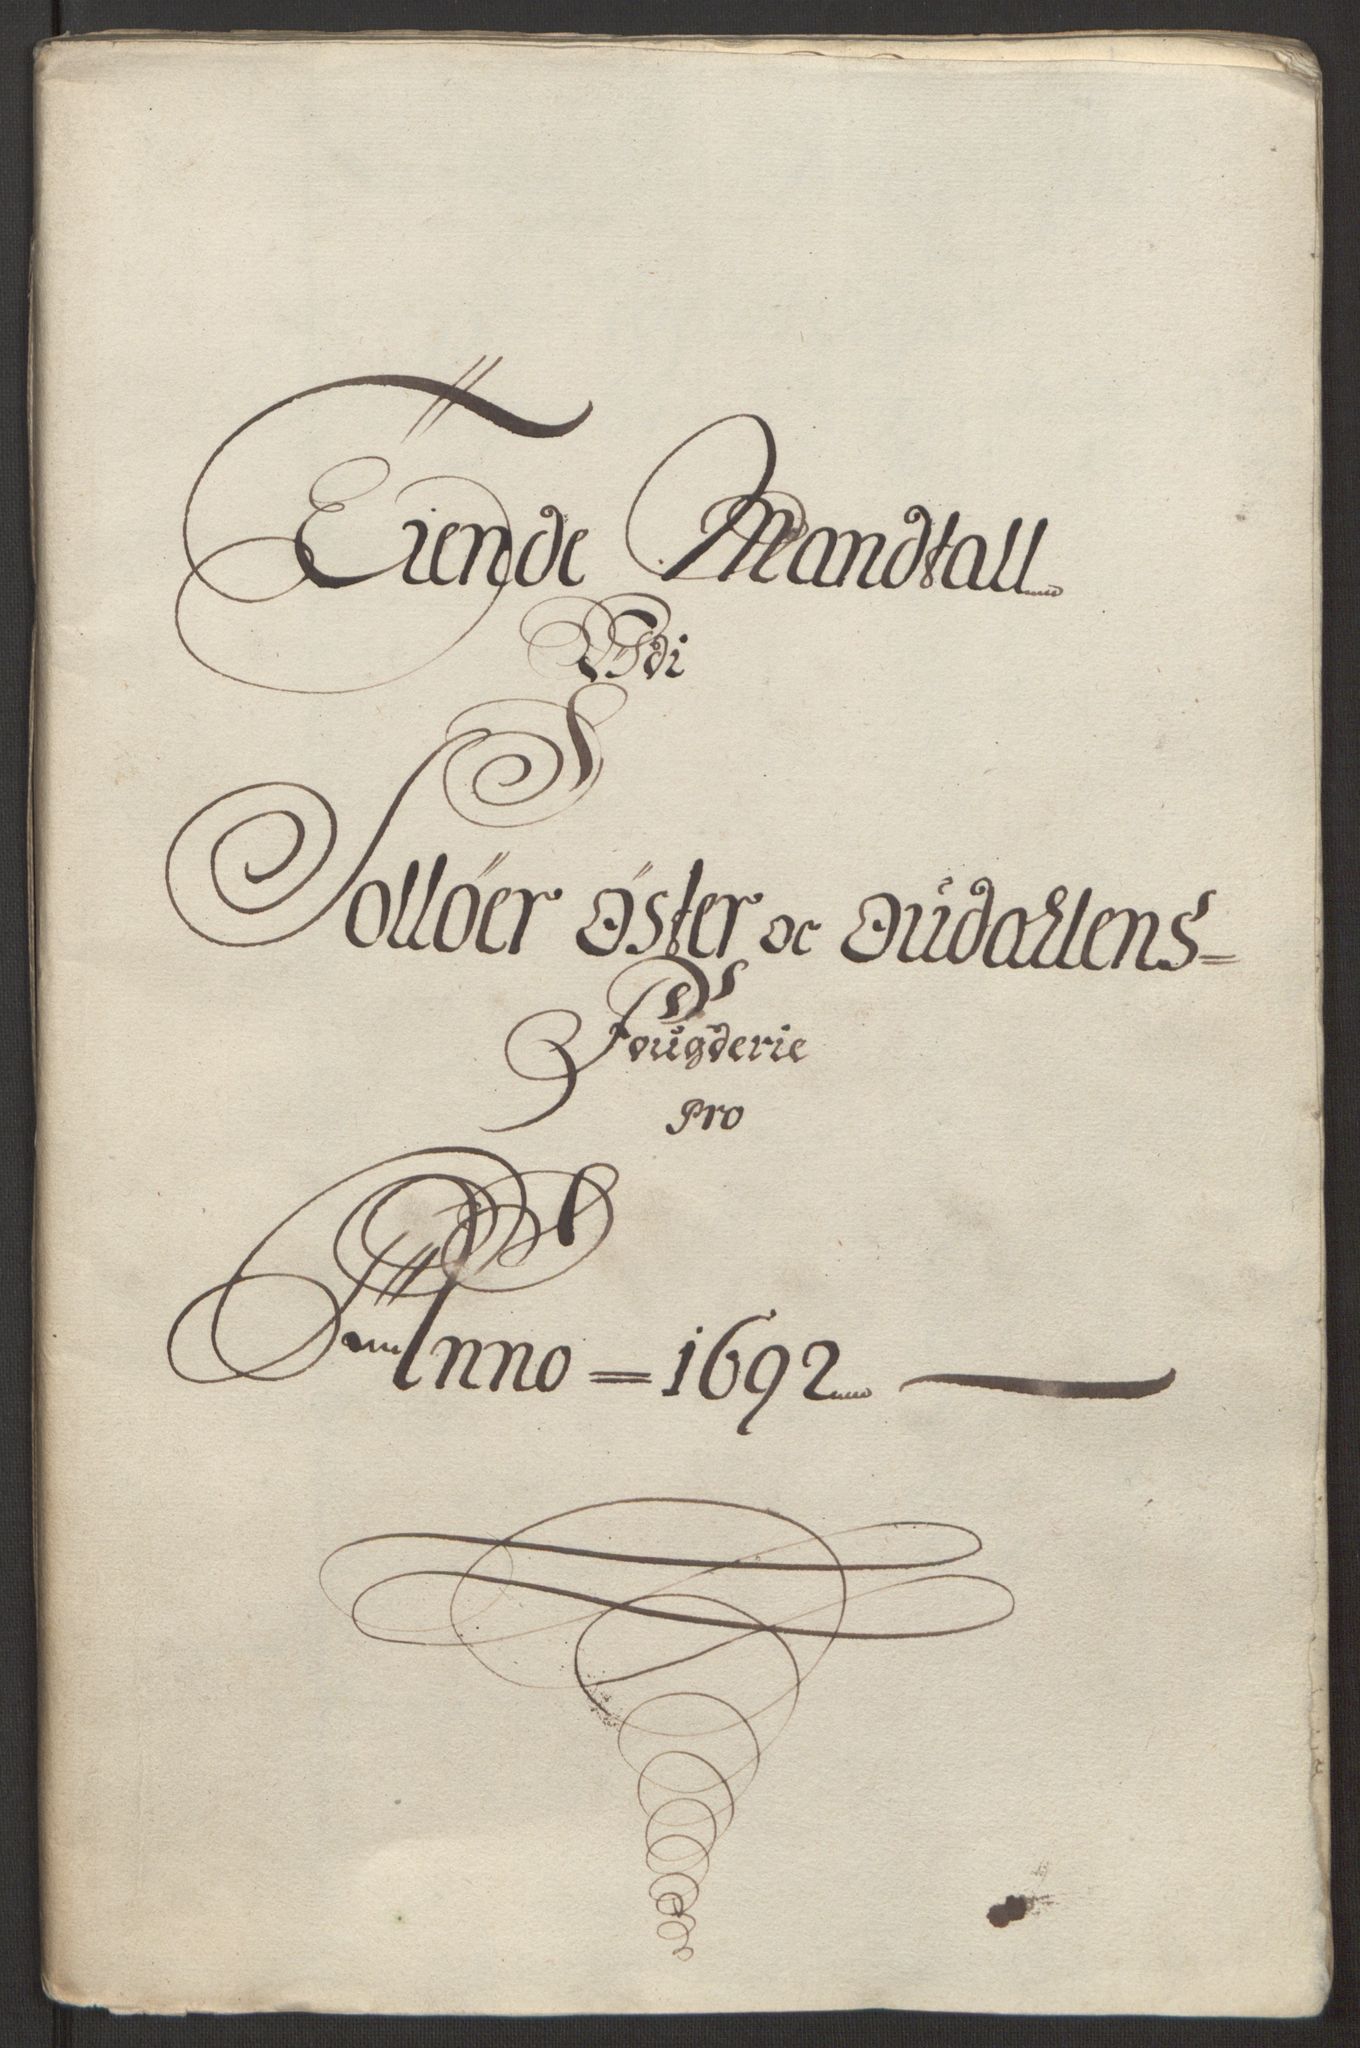 Tiende Mandtall
Vdi
Sollöer Öster oc Oüdahlens=
Fougderie
Pro
Anno = 1692